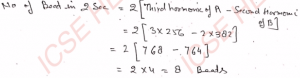 No of Beat in 2 Sec = 2 [Third harmonic of A - Second Harmonic
of B]
= 2 [3 x 256 - 2 x 382]
= 2 [768 - 764]
= 2 x 4 = 8 Beats